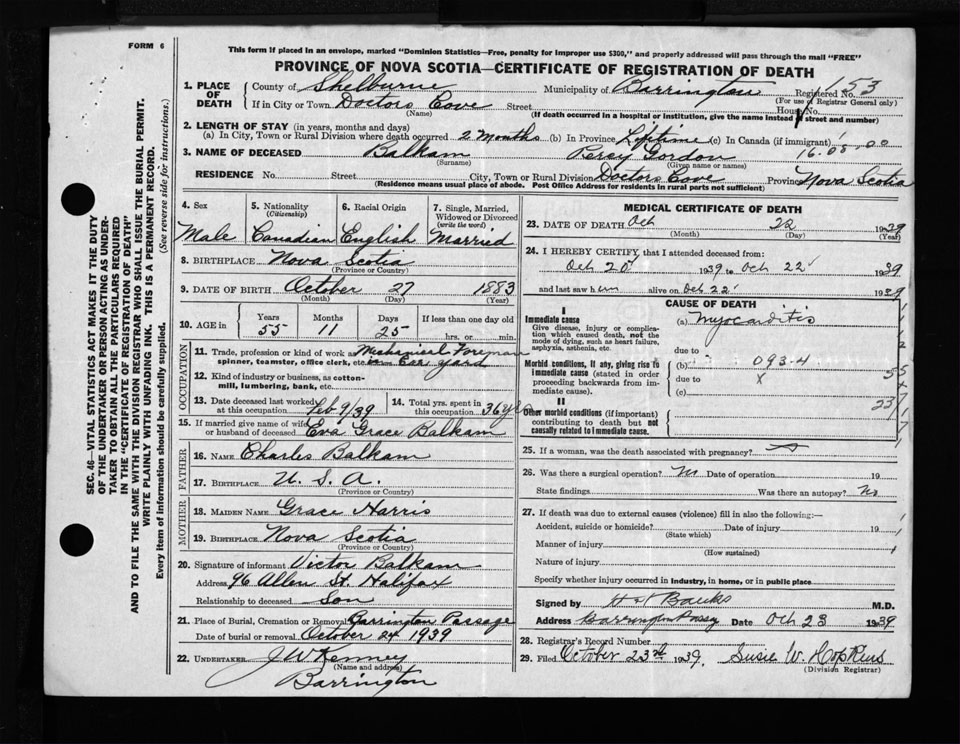 FORM 6
This form if placed in an envelope, marked "Dominion Statistics—Free, penalty for improper use $300," and properly addressed will pass through the mail "FREE"
PROVINCE OF NOVA SCOTIA—CERTIFICATE OF REGISTRATION OF DEATH
1. PLACE OF DEATH
County of Shelburne Municipality of Barrington Registered No. 153
(For use of Registrar General only)
If in City or Town Doctors Cove Street House No.
(Name) (If death occurred in a hospital or institution, give the name instead of street and number)
2. LENGTH OF STAY (in years, months and days)
(a) In City, Town or Rural Division where death occurred 2 Months (b) In Province Lifetime (c) In Canada (if immigrant)
16.08.00
3. NAME OF DECEASED Balkam Percy Gordon
(Surname) (Given name or names)
RESIDENCE No. Street City, Town or Rural Division Doctors Cove Province Nova Scotia
(Residence means usual place of abode. Post Office Address for residents in rural parts not sufficient)
4. Sex 5. Nationality (Citizenship) 6. Racial Origin 7. Single, Married, Widowed or Divorced (write the word)
Male Canadian English Married
8. BIRTHPLACE Nova Scotia
(Province or Country)
9. DATE OF BIRTH October 27 1883
(Month) (Day) (Year)
10. AGE in Years Months Days If less than one day old
55 11 25 hrs. or min.
OCCUPATION
11. Trade, profession or kind of work as spinner, teamster, office clerk, etc. Mechanical Foreman in Car Yard
12. Kind of industry or business, as cotton-mill, lumbering, bank, etc.
13. Date deceased last worked at this occupation Feb 9/39 14. Total yrs. spent in this occupation 36 yrs
15. If married give name of wife or husband of deceased Eva Grace Balkam
FATHER
16. NAME Charles Balkam
17. BIRTHPLACE U. S. A.
(Province or Country)
MOTHER
18. MAIDEN NAME Grace Harris
19. BIRTHPLACE Nova Scotia
(Province or Country)
20. Signature of informant Victor Balkam
Address 96 Allen St. Halifax
Relationship to deceased Son
21. Place of Burial, Cremation or Removal Barrington Passage
Date of burial or removal October 24 1939
22. UNDERTAKER J W Kenney
(Name and address)
Barrington
MEDICAL CERTIFICATE OF DEATH
23. DATE OF DEATH Oct 22 1939
(Month) (Day) (Year)
24. I HEREBY CERTIFY, that I attended deceased from:
Oct 20 1939 to Oct 22 1939
and last saw him alive on Oct 22 1939
CAUSE OF DEATH
I
Immediate cause
Give disease, injury or complication which caused death, not the mode of dying, such as heart failure, asphyxia, asthenia, etc.
(a) Myocarditis
due to
Morbid conditions, if any, giving rise to immediate cause (stated in order proceeding backwards from immediate cause).
(b) 093-4
due to X
(c)
II
Other morbid conditions (if important) contributing to death but not causally related to immediate cause.
25. If a woman, was the death associated with pregnancy?
26. Was there a surgical operation? No Date of operation 19
State findings Was there an autopsy? No
27. If death was due to external causes (violence) fill in also the following:—
Accident, suicide or homicide? Date of injury 19
(State which)
Manner of injury
(How sustained)
Nature of injury
Specify whether injury occurred in industry, in home, or in public place
Signed by Banks M.D.
Address Barrington Passage Date Oct 23 1939
28. Registrar's Record Number
29. Filed October 23rd 1939. Susie W. Hopkins
(Division Registrar)
SEC. 46—VITAL STATISTICS ACT MAKES IT THE DUTY
OF THE UNDERTAKER OR PERSON ACTING AS UNDER-
TAKER TO OBTAIN ALL THE PARTICULARS REQUIRED
IN THE "CERTIFICATE OF REGISTRATION OF DEATH"
AND TO FILE THE SAME WITH THE DIVISION REGISTRAR WHO SHALL ISSUE THE BURIAL PERMIT.
WRITE PLAINLY WITH UNFADING INK. THIS IS A PERMANENT RECORD.
Every item of information should be carefully supplied. (See reverse side for instructions.)